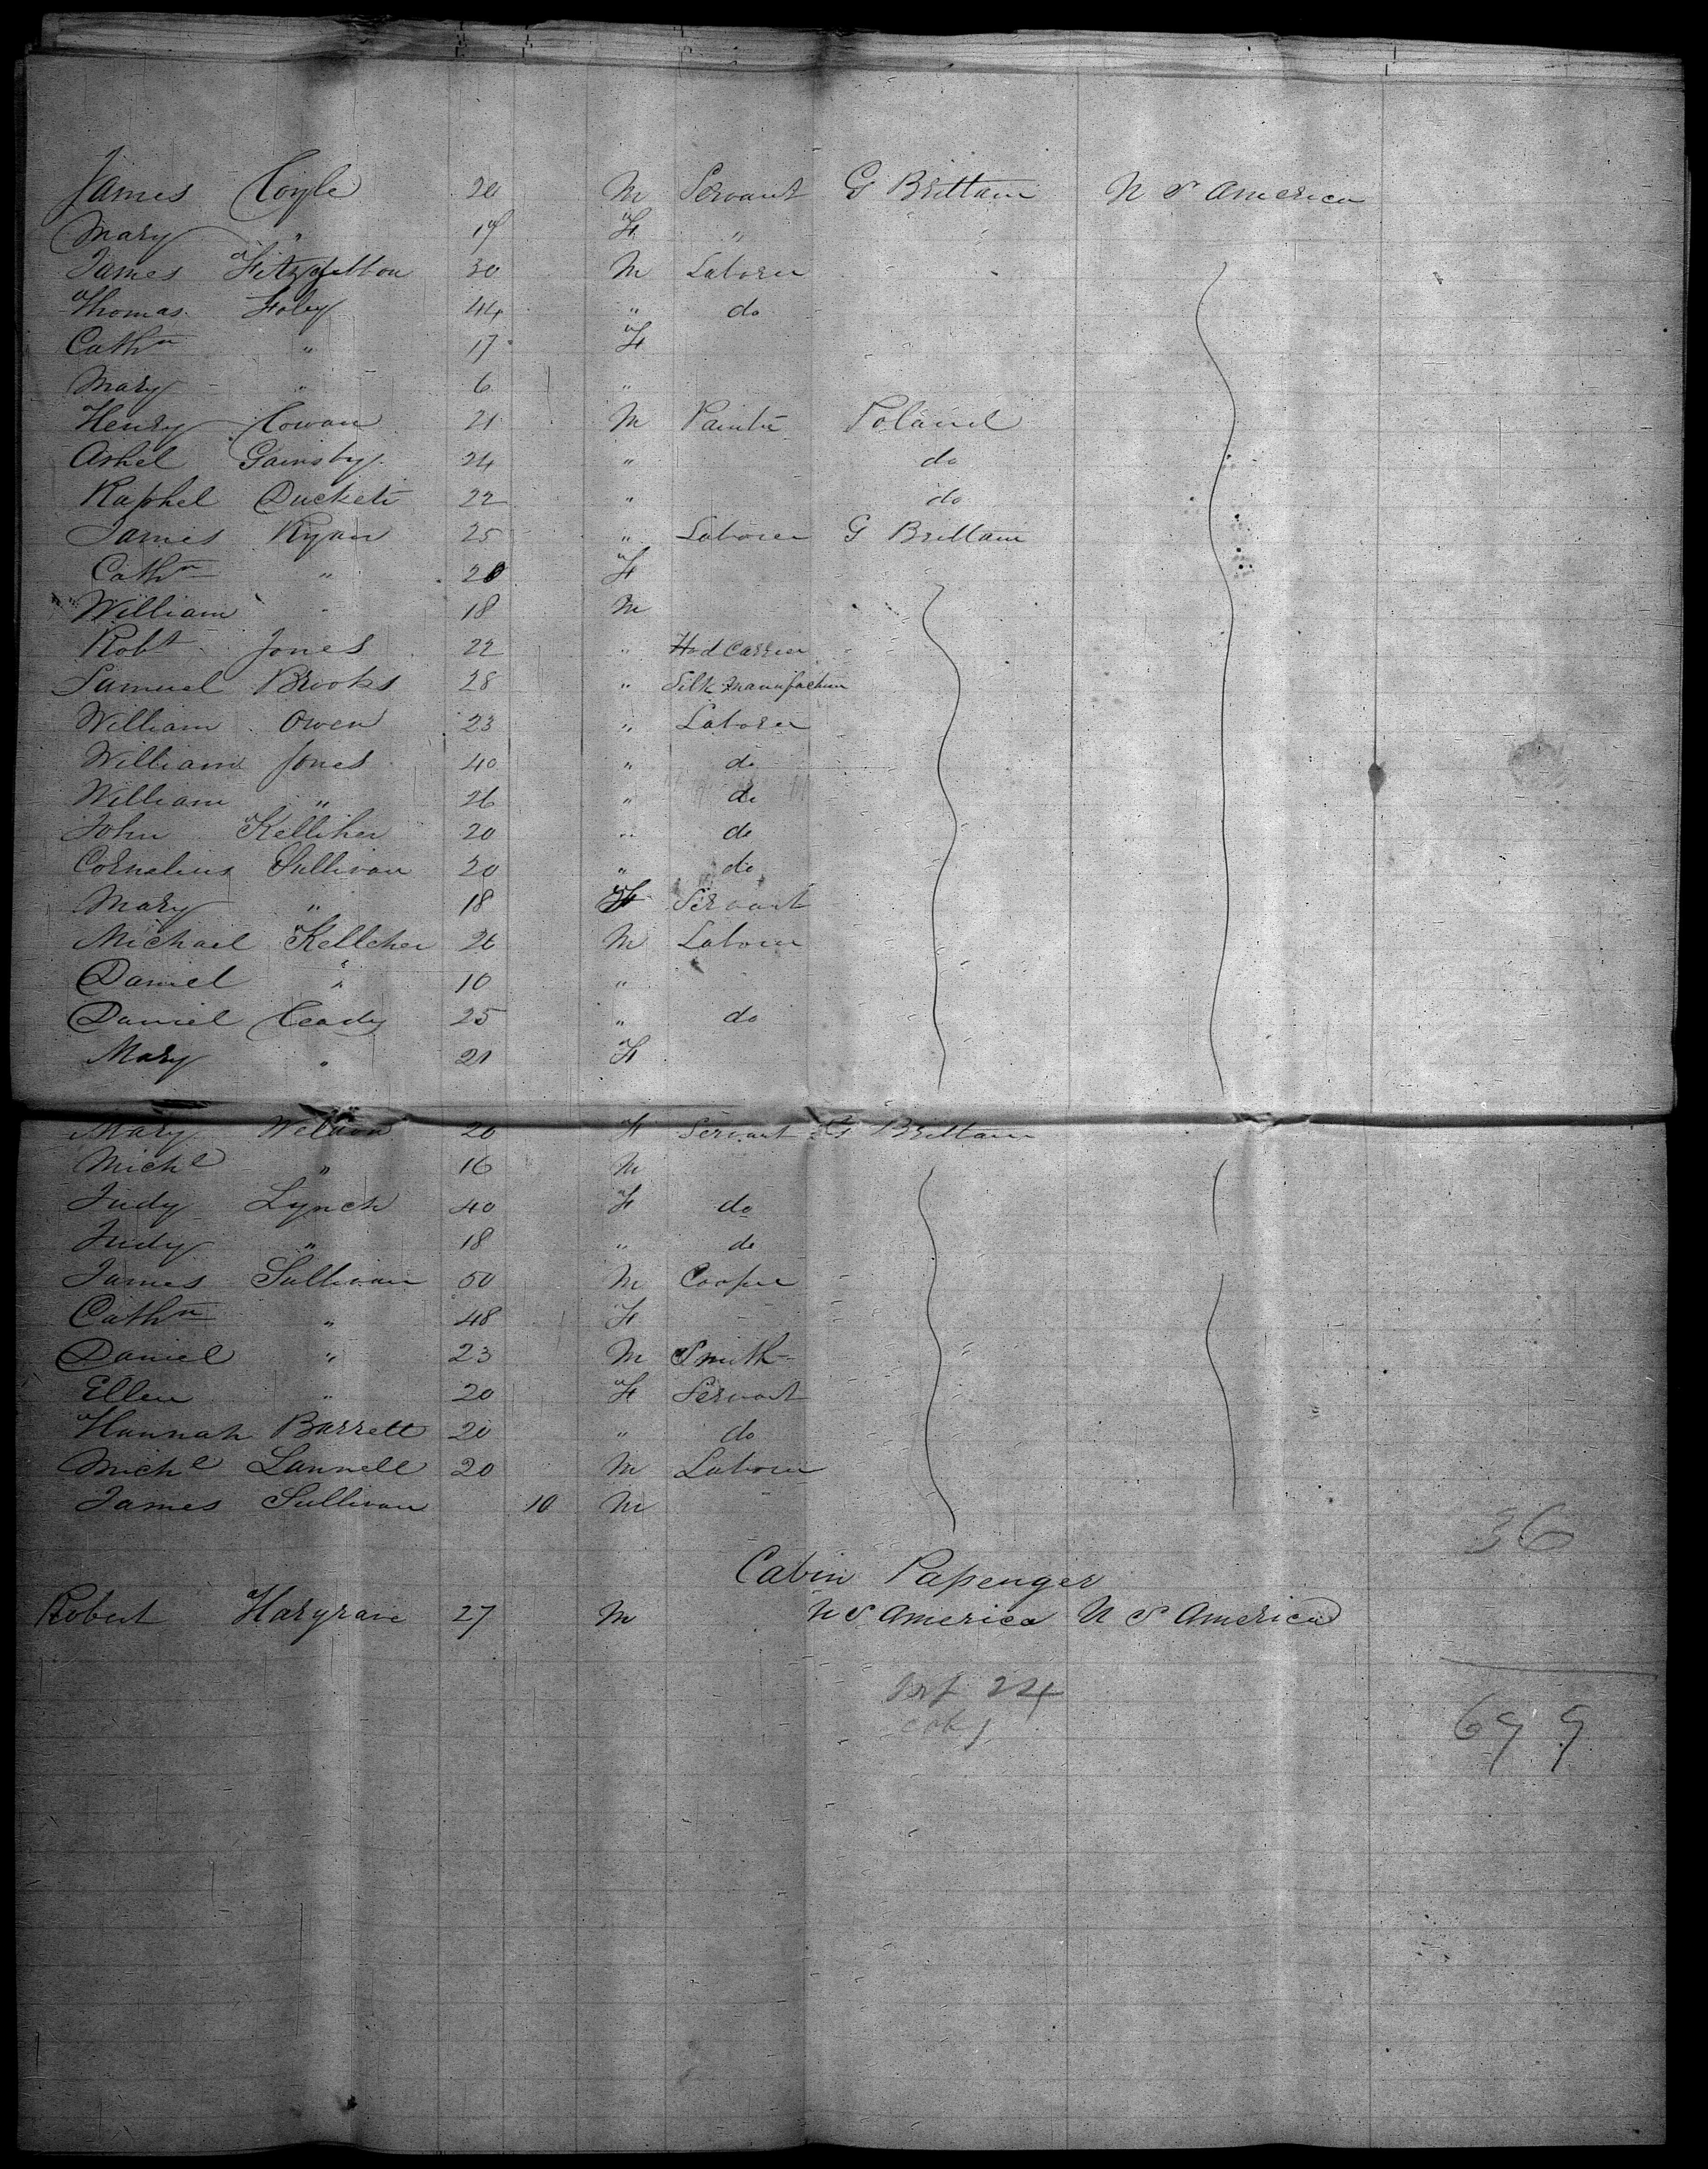 James Coyle 20 M Servant G Brittain U S America
Mary " 19 F "
James Fitzgibbon 30 M Laborer
Thomas Foley 44 " do
Cathn " 17 F
Mary " 6 "
Henry Cowan 21 M Painter Poland
Ashel Gainsby 24 " do
Raphel Duckett 22 " do
James Ryan 25 " Laborer G Brittain
Cathn " 20 F
William " 18 M
Robt Jones 22 " Hod Carrier
Samuel Brooks 28 " Silk Manufacturer
William Owen 23 " Laborer
William Jones 40 " do
William " 26 " do
John Kelliher 20 " do
Cornelius Sullivan 20 " do
Mary " 18 F Servant
Michael Kelleher 26 M Laborer
Daniel " 10 "
Daniel Ceady 25 " do
Mary " 21 F
Mary 20 F Servant G Brittain
Michl " 16 M
Judy Lynch 40 F do
Judy " 18 " do
James Sullivan 50 M Cooper
Cathn " 48 F
Daniel " 23 M Smith
Ellen " 20 F Servant
Hannah Barrett 20 " do
Michl Lannell 20 M Laborer
James Sullivan 10 M
36
Cabin Passenger
Robert Hargrave 27 M U S America U S America
24
699